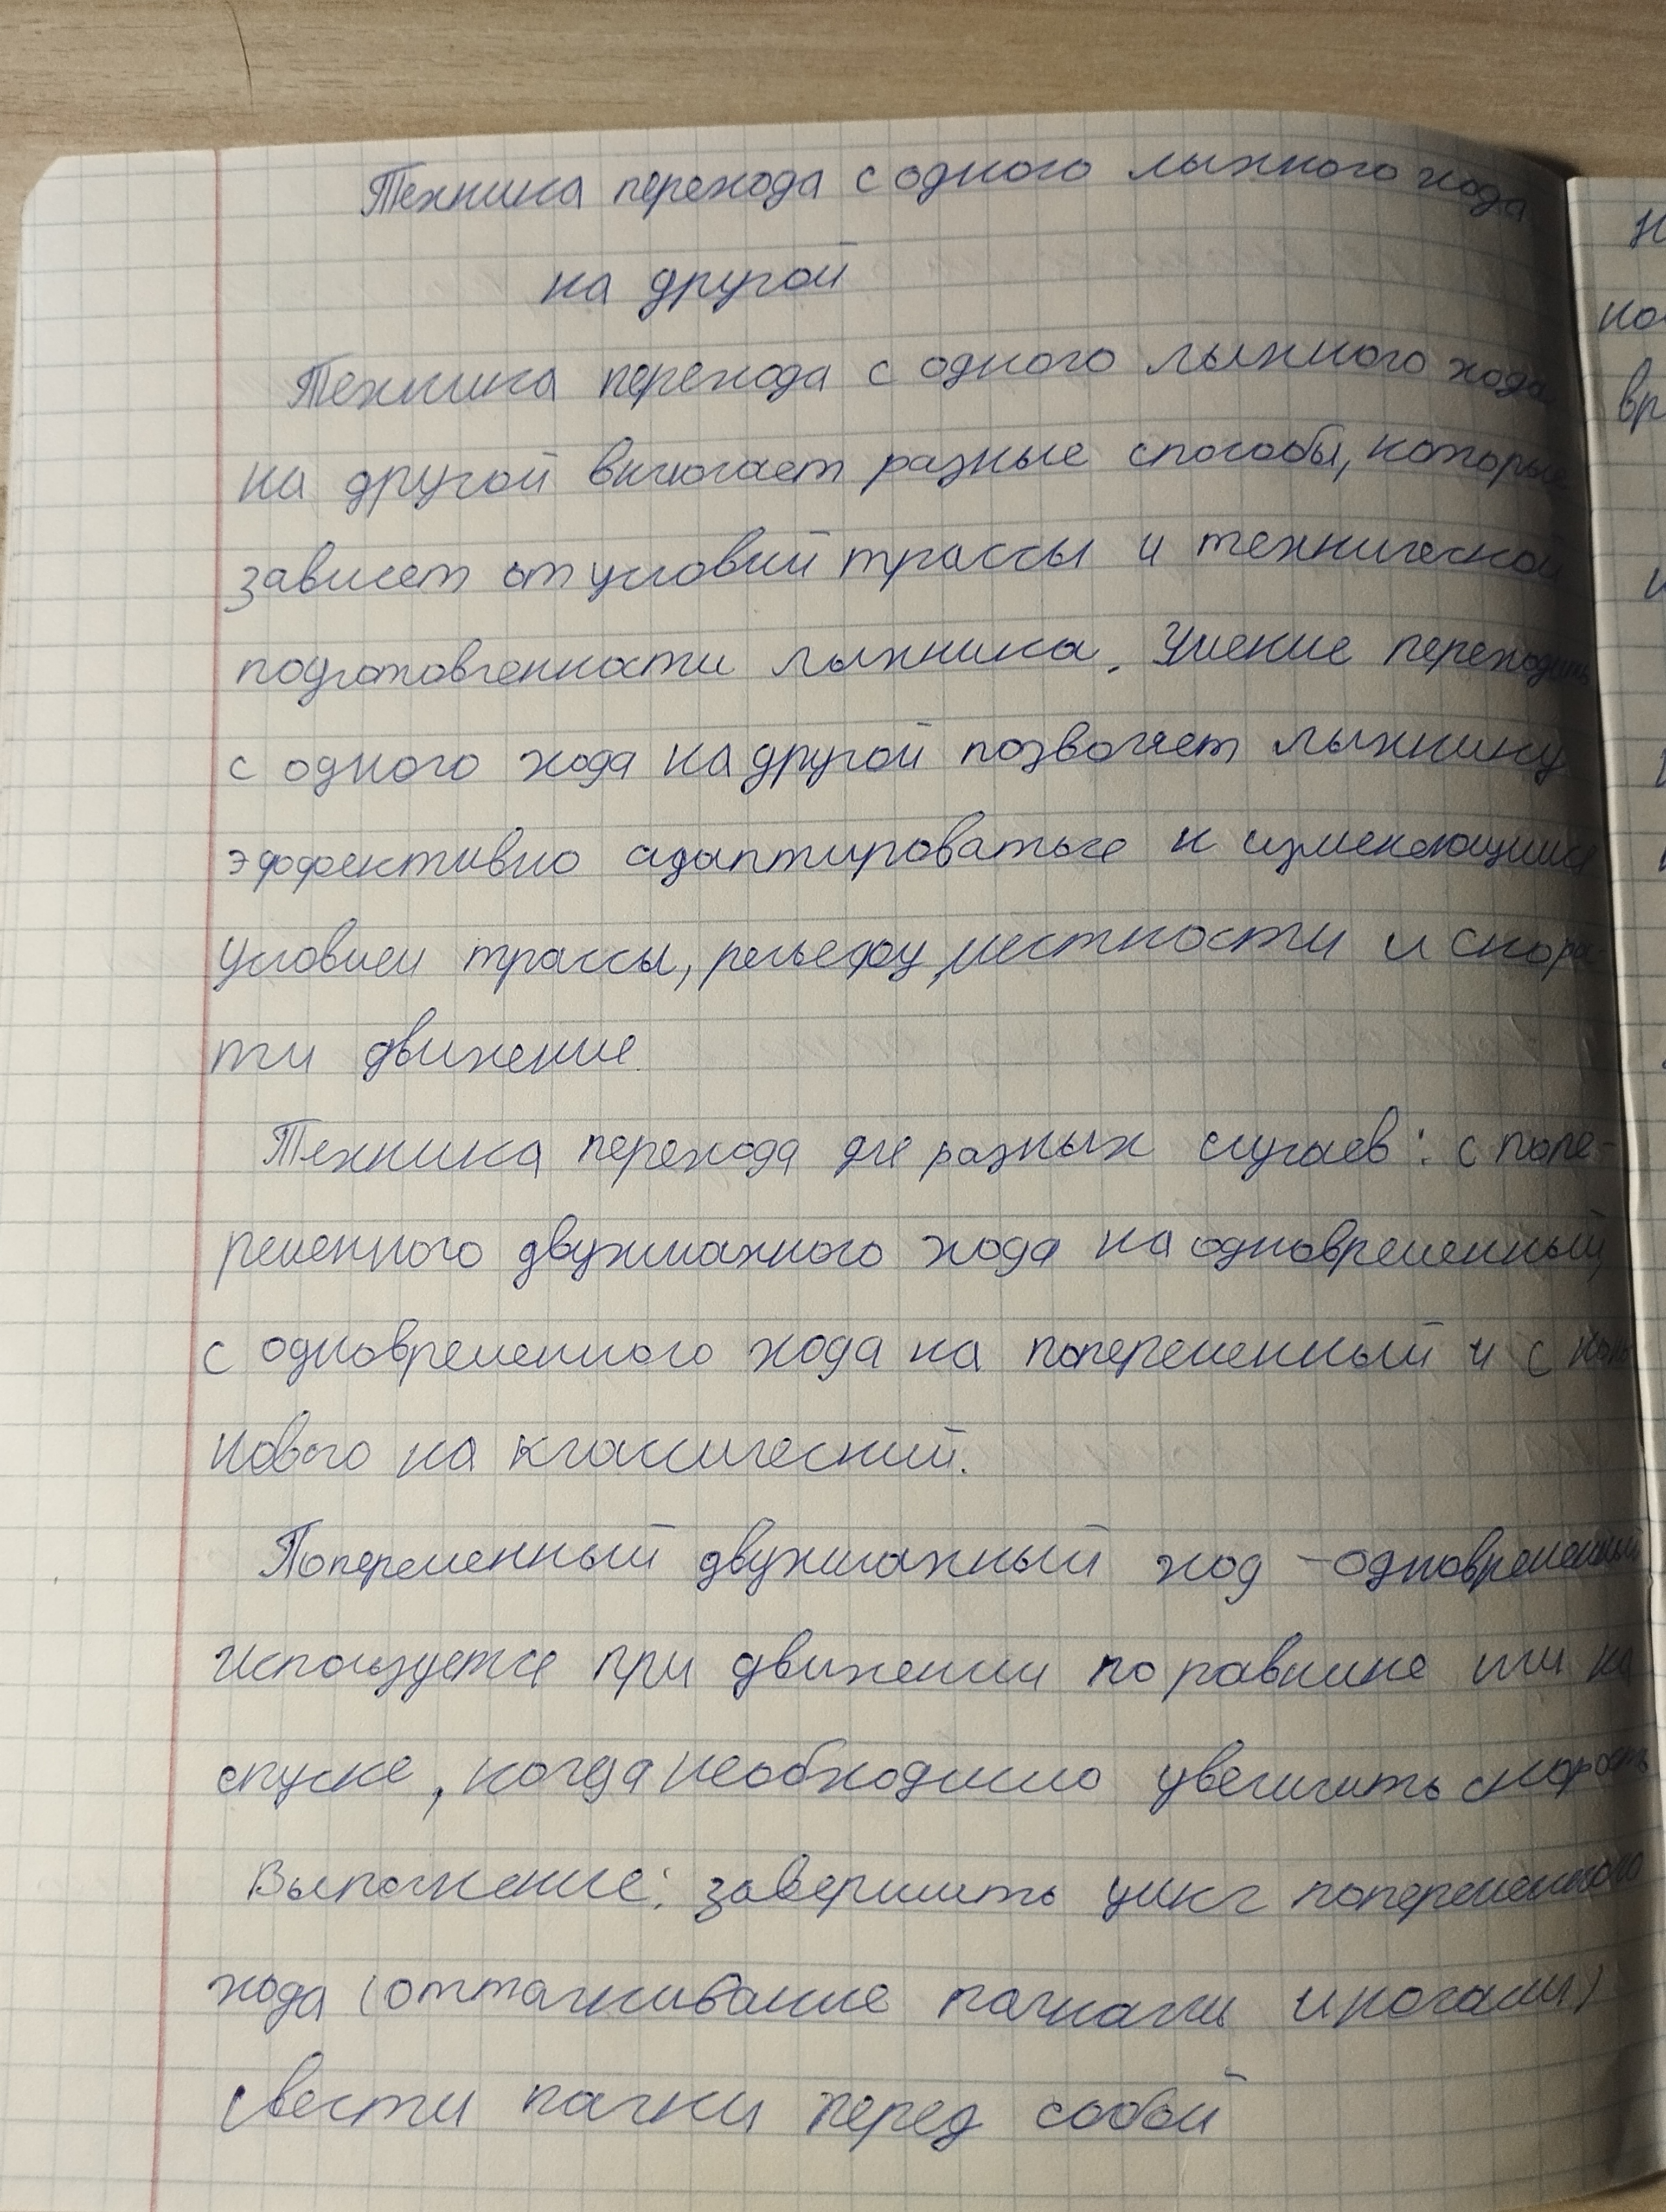 Техника перехода с одного лыжного хода
на другой
Техника перехода с одного лыжного хода
на другой включает разные способы, которые
зависят от условий трассы и технической
подготовленности лыжника. Умение переходить
с одного хода на другой позволяет лыжнику
эффективно адаптироваться к изменяющимся
условиям трассы, рельефу местности и скорос-
ти движения.
Техника перехода для разных случаев: с попе-
ременного двухшажного хода на одновременный,
с одновременного хода на попеременный и с конь
кового на классический.
Попеременный двухшажный ход – одновременный
Используется при движении по равнине или на
спуске, когда необходимо увеличить скорость
Выполнение: завершить цикл попеременного
хода (отталкивание палками и ногами)
свести палки перед собой
Н
вр